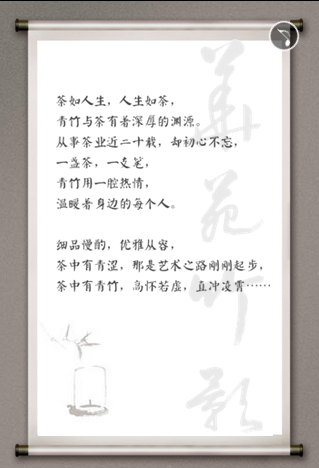 茶如人生，人生如茶，
青竹与茶有着深厚的渊源。
从事茶业近二十载，却初心不忘，
一盏茶，一支笔，
青竹用一腔热情，
温暖着身边的每个人。
细品慢酌，优雅从容，
茶中有青涩，那是艺术之路刚刚起步，
茶中有青竹，高怀若虚，直冲凌霄……
华苑竹影